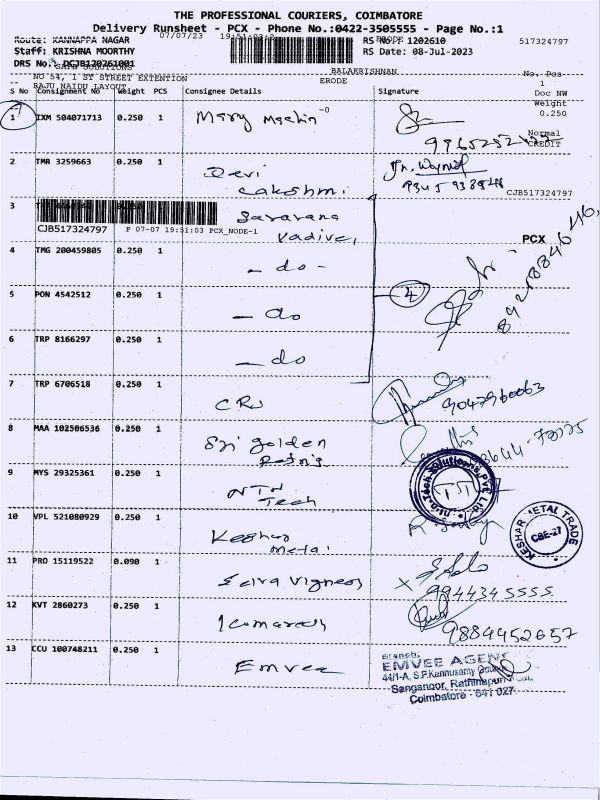 THE PROFESSIONAL COURIERS, COIMBATORE
Delivery Runsheet - PCX - Phone No.:0422-3505555 - Page No.:1
Route: KANNAPPA NAGAR 07/07/23 RS No.: 1202610 517324797
Staff: KRISHNA MOORTHY RS Date: 08-Jul-2023
DRS No.: DCJB120261001
BALAKRISHNAN
NO 54, 1 ST STREET EXTENTION ERODE No. Pos
RAJU NAIDU LAYOUT 1
S No Consignment No Weight PCS Consignee Details Signature Doc NW
Weight
0.250
1 IXM 504071713 0.250 1 Mary
Normal
CREDIT
2 TMR 3259663 0.250 1 Devi
Lakshmi
CJB517324797
3 Saravana
Vadivel
CJB517324797 P 07-07 19:51:03 PCX_NODE-1
PCX
4 TMG 200459805 0.250 1 - do -
4
5 PON 4542512 0.250 1 - do
6 TRP 8166297 0.250 1 - do
7 TRP 6706518 0.250 1 CRJ 9047960063
8 MAA 102506536 0.250 1 Sri golden
9 MYS 29325361 0.250 1 NTN
Tech
10 VPL 521080929 0.250 1 Keshar
metal
KESHAR METAL TRADE
CBE-27
11 PRO 15119522 0.090 1 Selva Vignesh
9944345555
12 KVT 2860273 0.250 1 Kumaresh
9884452657
13 CCU 100748211 0.250 1 Emvee
Branch:
EMVEE AGENC
44/1-A, S.P.Kannusamy
Sanganoor, Rathinapuri
Coimbatore - 641 027